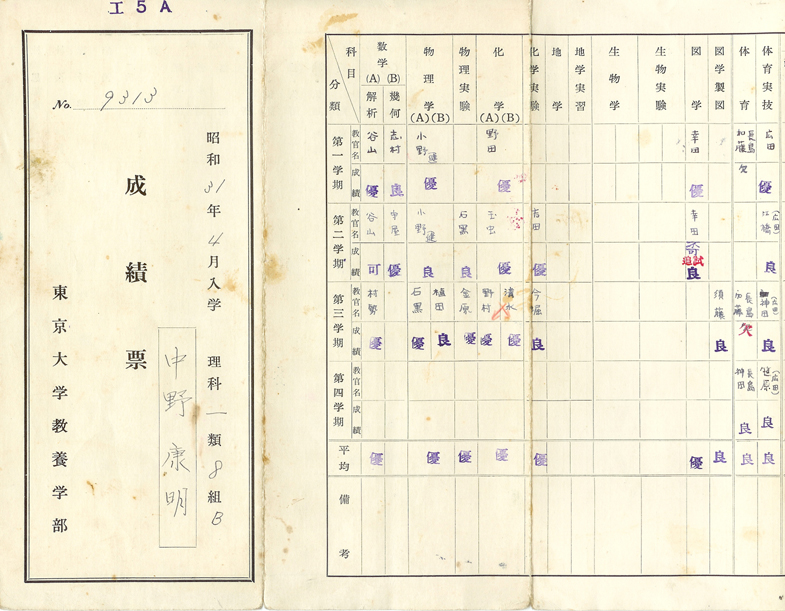 工5A
No. 9313
昭和31年4月入学 理科一類8組B
成績票
中野康明
東京大学教養学部
科目 分類 数学(A)(B) 解析 幾何 物理学(A)(B) 物理実験 化学(A)(B) 化学実験 地学 地学実習 生物学 生物実験 図学 図学製図 体育 体育実技
第一学期 教官名 谷山 志村 小野健 野田 幸田 長島 加藤 広田
成績 優 良 優 優 優 欠 優
第二学期 教官名 谷山 中屋 小野健 石黒 玉虫 吉田 幸田 (広田)
成績 可 優 良 良 優 優 否 追試 良 良
第三学期 教官名 村勢 石黒 植田 金原 野村 清水 今堀 須藤 長島 加藤 神田 (広田)
成績 優 優 良 優 優 優 良 良 欠 良
第四学期 教官名 長島 神田 笠原 (広田)
成績 良 良
平均 優 優 優 優 優 優 良 良 良
備考